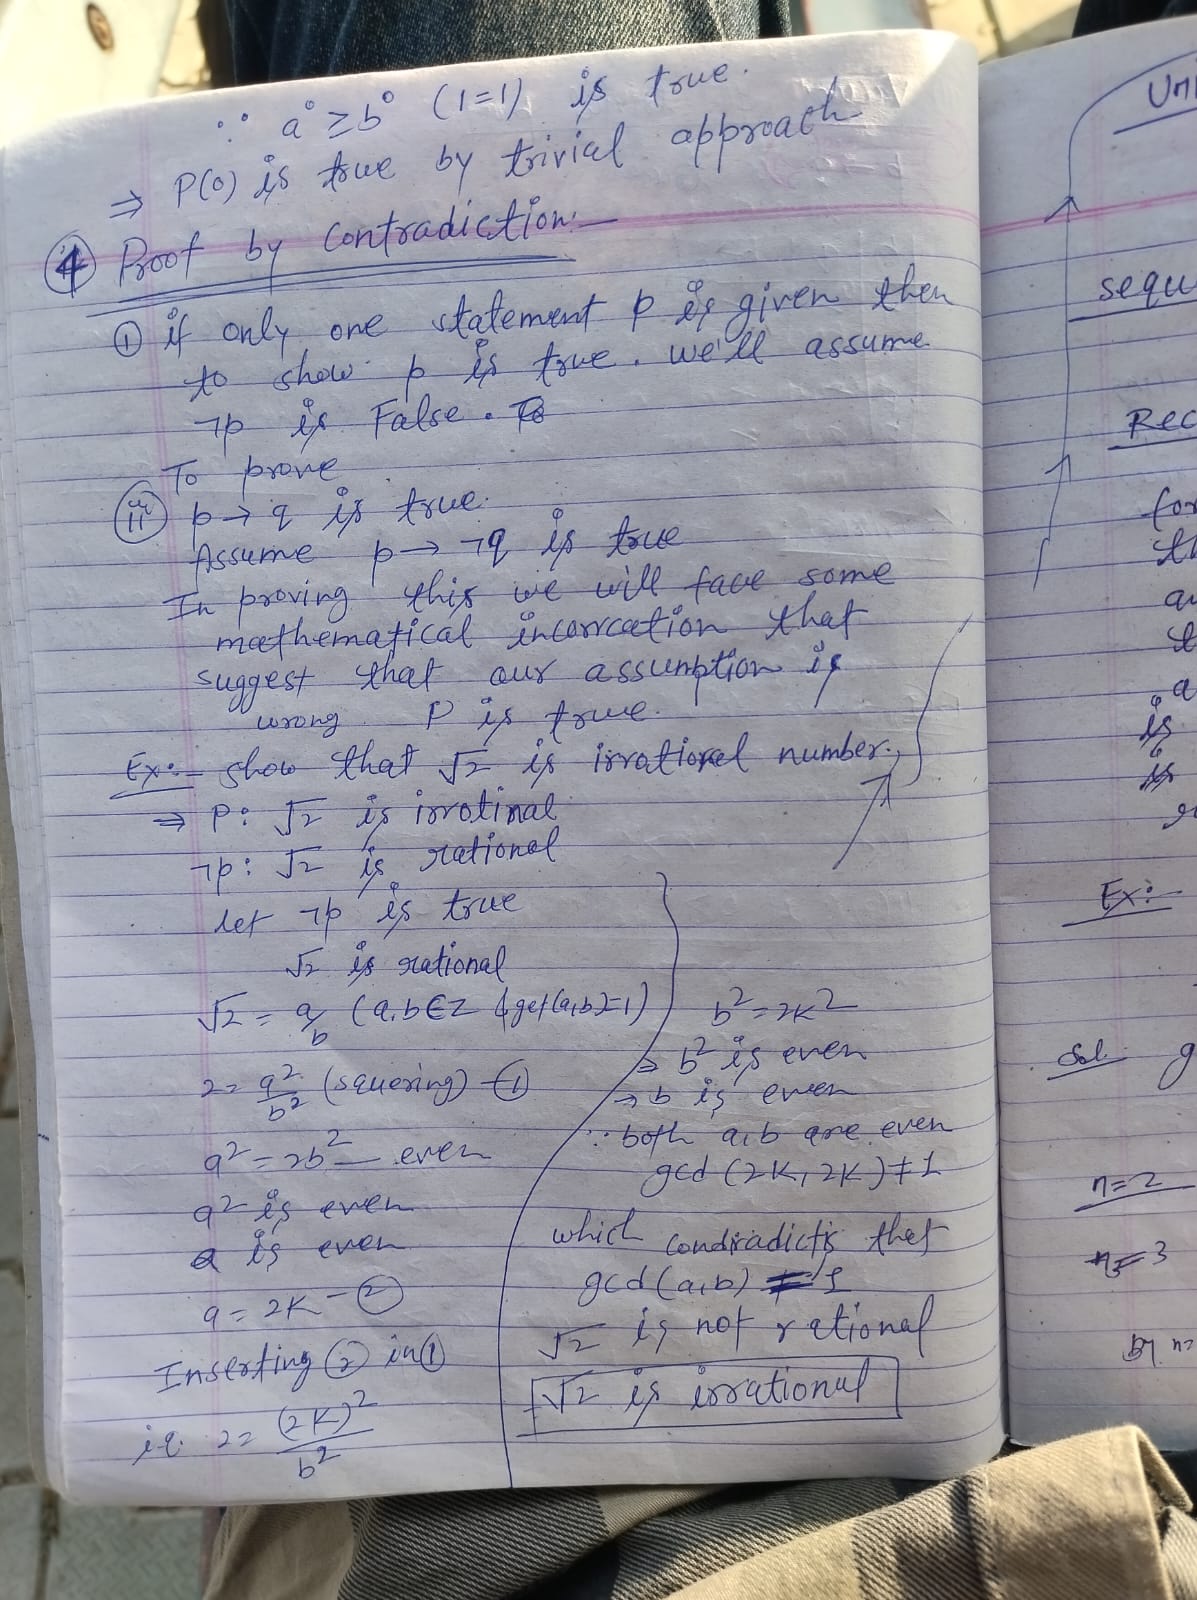 ∵ a⁰ ≥ b⁰ (1=1) is true.
⇒ P(0) is true by trivial approach
④ Proof by Contradiction:-
① if only one statement p is given then
to show p is true. we'll assume
¬p is False. To
To prove
(ii) p → q is true.
Assume p → ¬q is true
In proving this we will face some
mathematical incorrcation that
suggest that our assumption is
wrong P is true.
Ex:- show that √2 is irrational number.
⇒ P: √2 is irrotinal
¬p: √2 is rational
let ¬p is true
√2 is rational
√2 = a/b (a,b∈Z & gcf(a,b)=1)
2 = a²/b² (squering) -①
a² = 2b² — even
a² is even
a is even
a = 2K -②
Inserting ② in ①
i.e. 2 = (2K)²/b²
b² = 2K²
⇒ b² is even
→ b is even
∵ both a,b are even
gcd (2K, 2K) ≠ 1
which condradictis that
gcd (a,b) = 1
√2 is not rational
√2 is irrational
Uni
sequ
Rec
for
th
an
t
a
is
is
Ex:-
Sol. g
n=2
n=3
By. n=